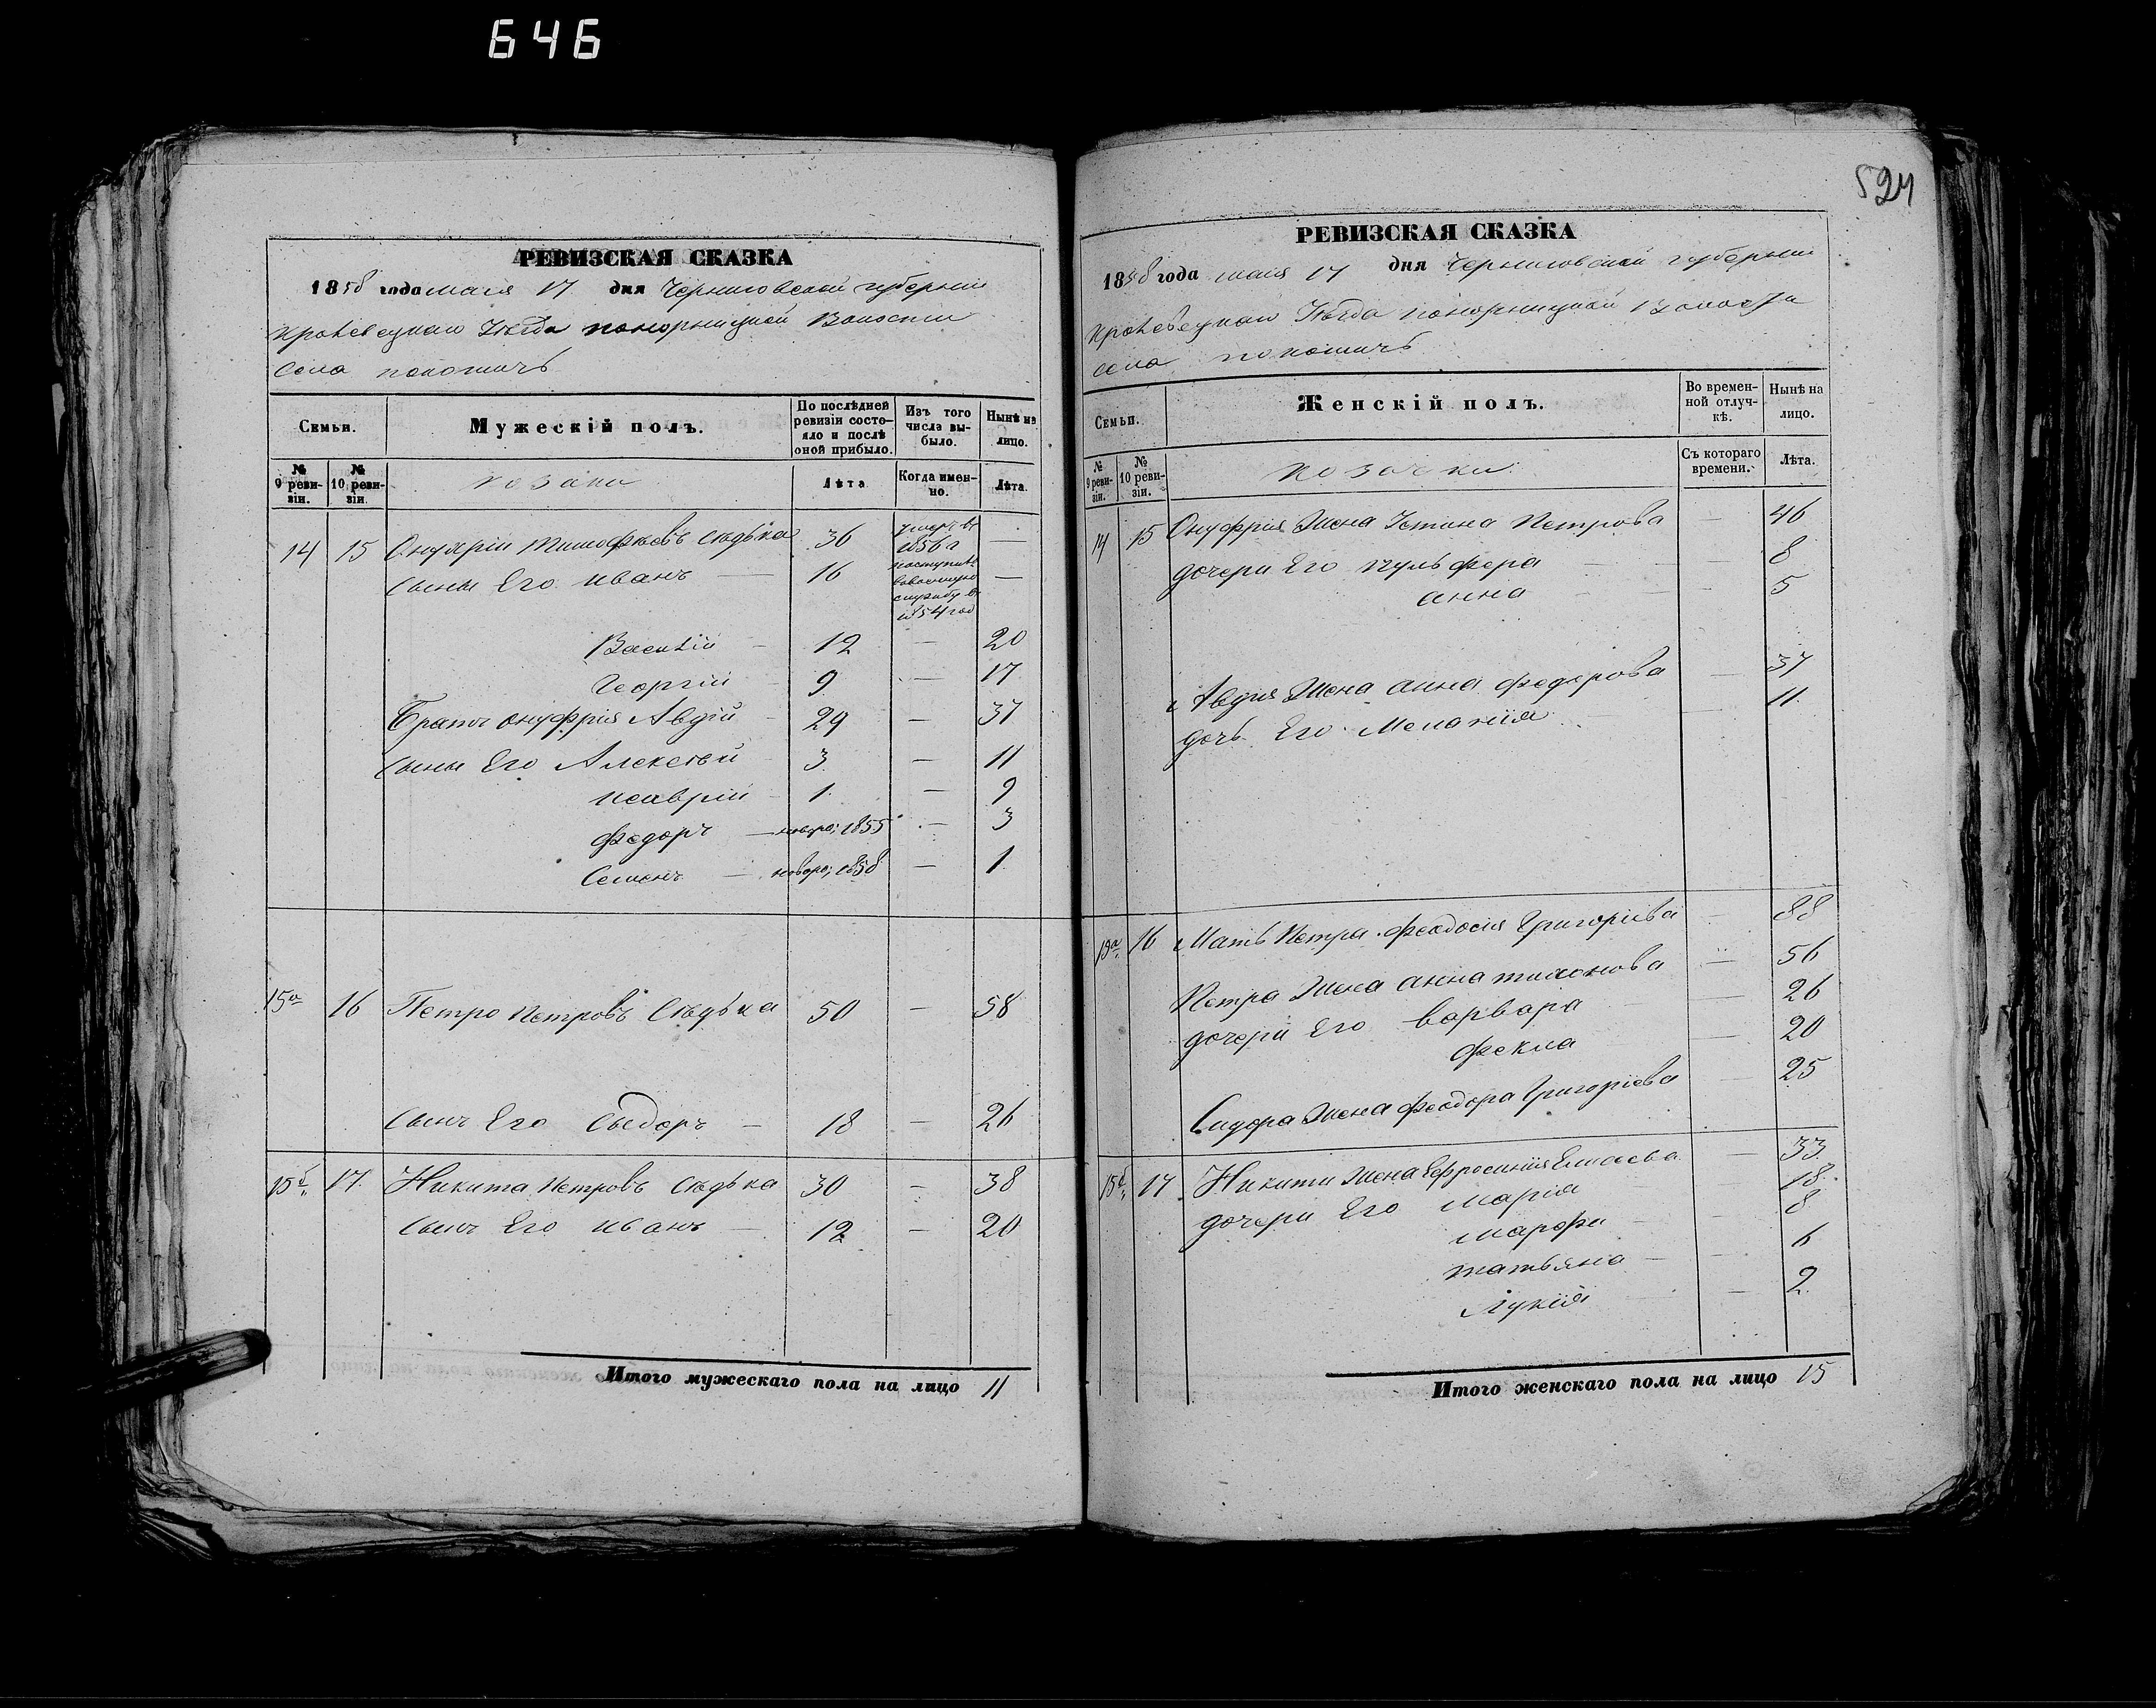 646
524
РЕВИЗСКАЯ СКАЗКА
1858 года мая 17 дня Черниговской губерніи
Кролевецкаго Уезда Понорницкой Волости
Села Покошичъ
Семьи.
Мужескій полъ.
По послѣдней ревизіи состояло и послѣ оной прибыло.
Изъ того числа выбыло.
Нынѣ на лицо.
№ 9 ревизіи.
№ 10 ревизіи.
козаки
Лѣта
Когда именно.
Лѣта.
14 15 Онуфрій Тимофѣевъ Сѣдька 36 умеръ въ 1856 г —
сыны Его Иванъ — 16 поступилъ в военную службу в 1854 год —
Василій — 12 — 20
Георгій 9 — 17
Братъ Онуфрія Авдій 29 — 37
сыны Его Алексѣй 3 — 11
1 — 9
Федоръ — новоро; 1855 — 3
Семенъ — новоро; 1858 — 1
15а 16 Петро Петровъ Сѣдька 50 — 58
сынъ Его Сыдоръ — 18 — 26
15б 17 Никита Петровъ Сѣдька 30 — 38
сынъ Его Иванъ — 12 — 20
Итого мужескаго пола на лицо 11
РЕВИЗСКАЯ СКАЗКА
1858 года мая 17 дня Черниговской губерніи
Кролевецкаго Уезда Понорницкой Волости
Села Покошичъ
Семьи.
Женскій полъ.
Во временной отлучкѣ.
Нынѣ на лицо.
№ 9 ревизіи.
№ 10 ревизіи.
козачки
Съ котораго времени.
Лѣта.
14 15 Онуфрія Жена Устина Петрова — 46
дочери Его Пульфера — 8
Анна — 5
Авдія Жена Анна Федорова — 37
дочь Его Меланія — 11
15а 16 Мать Петра Феодосія Григоріева — 88
Петра Жена Анна Тихонова — 56
дочери Его Варвара — 26
Фекла — 20
Сидора Жена Феодора Григоріева — 25
15б 17 Никиты Жена Ефросинія — 33
дочери Его Марія 18
Марфа — 8
Татьяна — 6
Лукія — 2
Итого женскаго пола на лицо 15